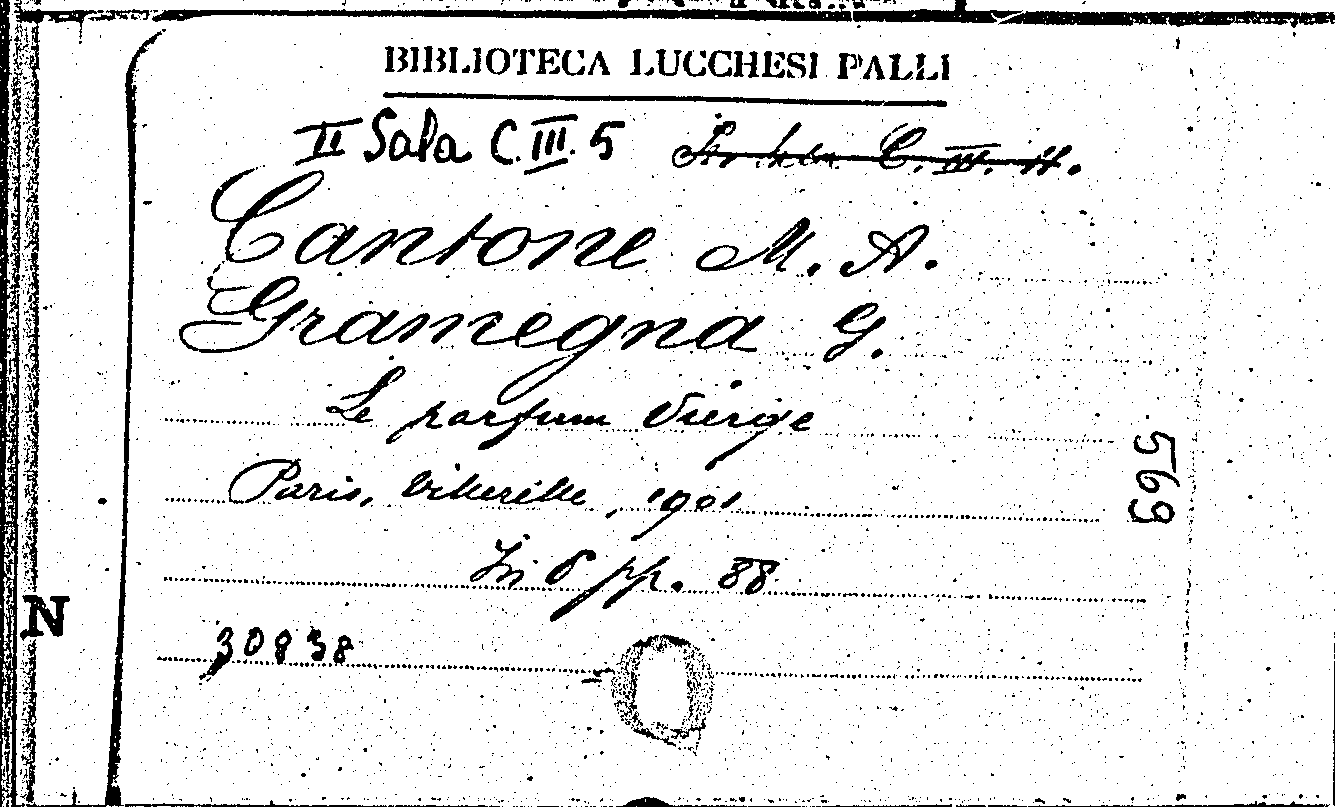 BIBLIOTECA LUCCHESI PALLI
II Sala C. III. 5 C. III.
Cantone M. A.
Gramegna G.
Le parfum Vierge
Paris, 1901
In 8 pp. 88
569
30838
N